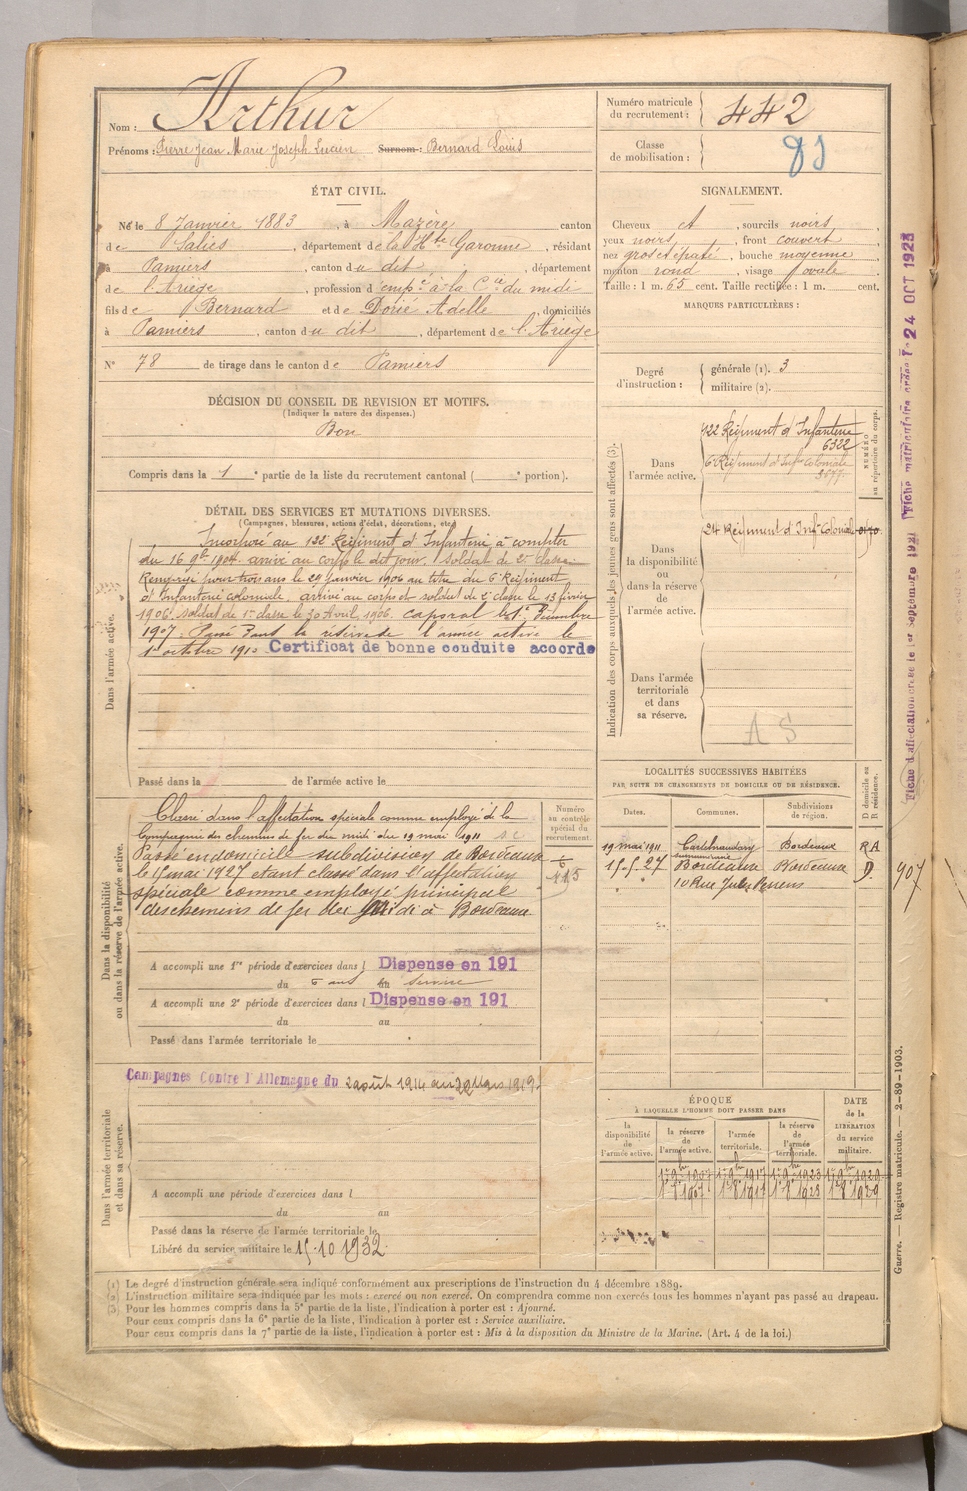 Nom : Arthur
Prénoms : Pierre Jean Marie Joseph Lucien Surnom : Bernard Louis
Numéro matricule du recrutement : 442
Classe de mobilisation :
ÉTAT CIVIL.
Né le 8 Janvier 1883, à Mazère canton
de Salies, département de la Hte Garonne, résidant
à Pamiers, canton du dit, département
de l'Ariège, profession d'empé à la Cie du midi
fils de Bernard et de Dorié Adelle, domiciliés
à Pamiers, canton du dit, département de l'Ariège
N° 78 de tirage dans le canton de Pamiers
SIGNALEMENT.
Cheveux et, sourcils noirs
yeux noirs, front couvert
nez gros et épaté, bouche moyenne
menton rond, visage ovale
Taille : 1 m. 65 cent. Taille rectifiée : 1 m. cent.
MARQUES PARTICULIÈRES :
Degré d'instruction : générale (1). 3
militaire (2).
DÉCISION DU CONSEIL DE REVISION ET MOTIFS.
(Indiquer la nature des dispenses.)
Bon
Compris dans la 1e partie de la liste du recrutement cantonal ( e portion).
DÉTAIL DES SERVICES ET MUTATIONS DIVERSES.
(Campagnes, blessures, actions d'éclat, décorations, etc.)
Dans l'armée active.
Incorporé au 122e Régiment d'Infanterie à compter
du 16 9bre 1904 arrivé au corps le dit jour. soldat de 2e classe
Rengagé pour trois ans le 29 janvier 1906 au titre du 6e Régiment
d'Infanterie coloniale. arrivé au corps et soldat de 2e classe le 13 février
1906. soldat de 1re classe le 30 Avril 1906. caporal le 1er Décembre
1907. Passé dans la réserve de l'armée active le
1er octobre 1910 Certificat de bonne conduite accordé
Passé dans la de l'armée active le
Indication des corps auxquels les jeunes gens sont affectés (3).
NUMÉRO au répertoire du corps.
Dans l'armée active.
122 Régiment d'Infanterie 6322
6 Régiment d'Infie coloniale 3677
Dans la disponibilité ou dans la réserve de l'armée active.
24 Régiment d'Infie Coloniale 0170
Dans l'armée territoriale et dans sa réserve.
A S
Dans la disponibilité ou dans la réserve de l'armée active.
Classé dans l'affectation spéciale comme employé de la
Compagnie des chemins de fer du midi du 19 mai 1911
Passé en domicile subdivision de Bordeaux
le 15 mai 1927 étant classé dans l'affectation
spéciale comme employé principal
des chemins de fer du Midi à Bordeaux
Numéro au contrôle spécial du recrutement.
A accompli une 1re période d'exercices dans l Dispensé en 191
du 5 ans au service
A accompli une 2e période d'exercices dans l Dispensé en 191
du au
Passé dans l'armée territoriale le
LOCALITÉS SUCCESSIVES HABITÉES
PAR SUITE DE CHANGEMENTS DE DOMICILE OU DE RÉSIDENCE.
Dates. Communes. Subdivisions de région. D domicile ou R résidence.
19 mai 1911 Castelnaudary Bordeaux RA
15-5-27 Bordeaux Bordeaux D.
10 Rue Jules
907
Dans l'armée territoriale et dans sa réserve.
Campagnes Contre l'Allemagne du 2 août 1914 au 22 Mars 1919.
A accompli une période d'exercices dans l
du au
Passé dans la réserve de l'armée territoriale le
Libéré du service militaire le 15.10 1932
ÉPOQUE
À LAQUELLE L'HOMME DOIT PASSER DANS
la disponibilité de l'armée active. la réserve de l'armée active. l'armée territoriale. la réserve de l'armée territoriale. DATE de la LIBÉRATION du service militaire.
1er 9bre 1907 1er 9bre 1917 1er 9bre 1923 1er 9bre 1929
1er 8bre 1907 1er 8bre 1917 1er 8bre 1923 1er 8bre 1929
(1) Le degré d'instruction générale sera indiqué conformément aux prescriptions de l'instruction du 4 décembre 1889.
(2) L'instruction militaire sera indiquée par les mots : exercé ou non exercé. On comprendra comme non exercés tous les hommes n'ayant pas passé au drapeau.
(3) Pour les hommes compris dans la 5e partie de la liste, l'indication à porter est : Ajourné.
Pour ceux compris dans la 6e partie de la liste, l'indication à porter est : Service auxiliaire.
Pour ceux compris dans la 7e partie de la liste, l'indication à porter est : Mis à la disposition du Ministre de la Marine. (Art. 4 de la loi.)
Guerre. — Registre matricule. — 2-89-1903.
Fiche d'affectation créée le 1er Septembre 1921 Fiche matriculaire créée le 24 OCT 1923